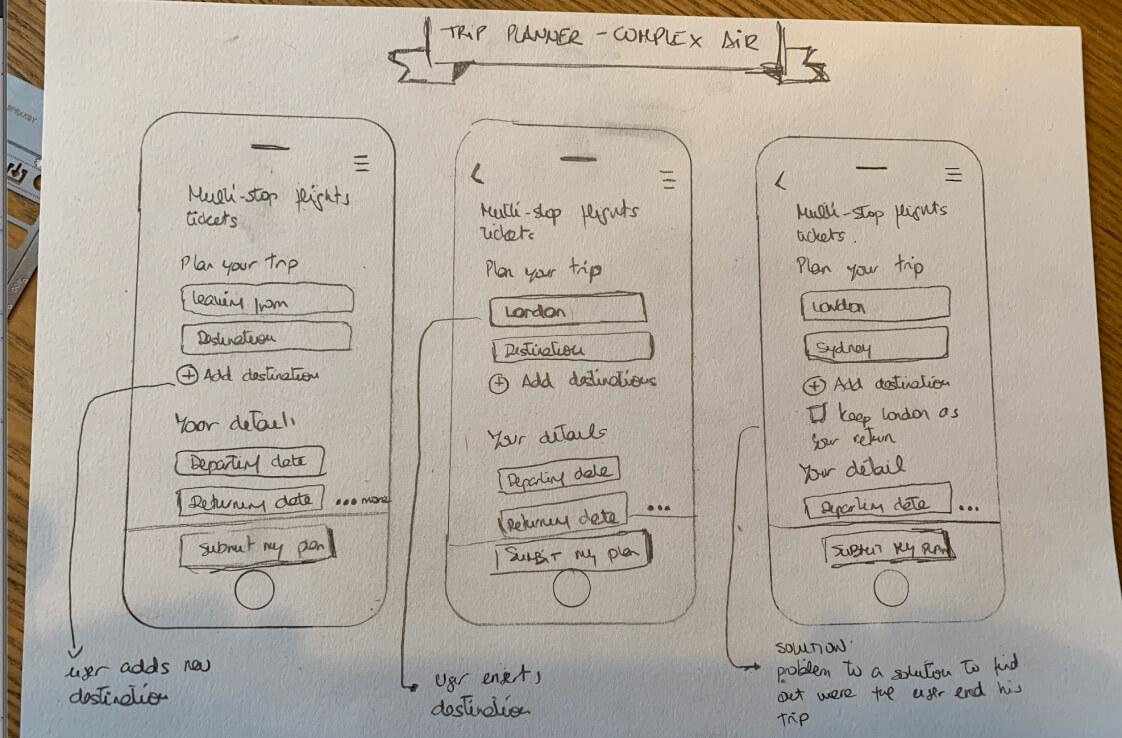 TRIP PLANNER - COMPLEX AIR
Multi-stop flights
tickets
Plan your trip
Leaving from
Destination
Add destination
Your details
Departing date
Returning date
...more
Submit my plan
user adds new
destination
Multi-stop flights
tickets
Plan your trip
London
Destination
Add destinations
Your details
Departing date
Returning date
...
SUBMIT my plan
User enters
destination
Multi-stop flights
tickets.
Plan your trip
London
Sydney
Add destination
keep London as
your return
Your detail
Departing date
...
SUBMIT MY PLAN
SOLUTION:
problem to a solution to find
out were the user end his
trip